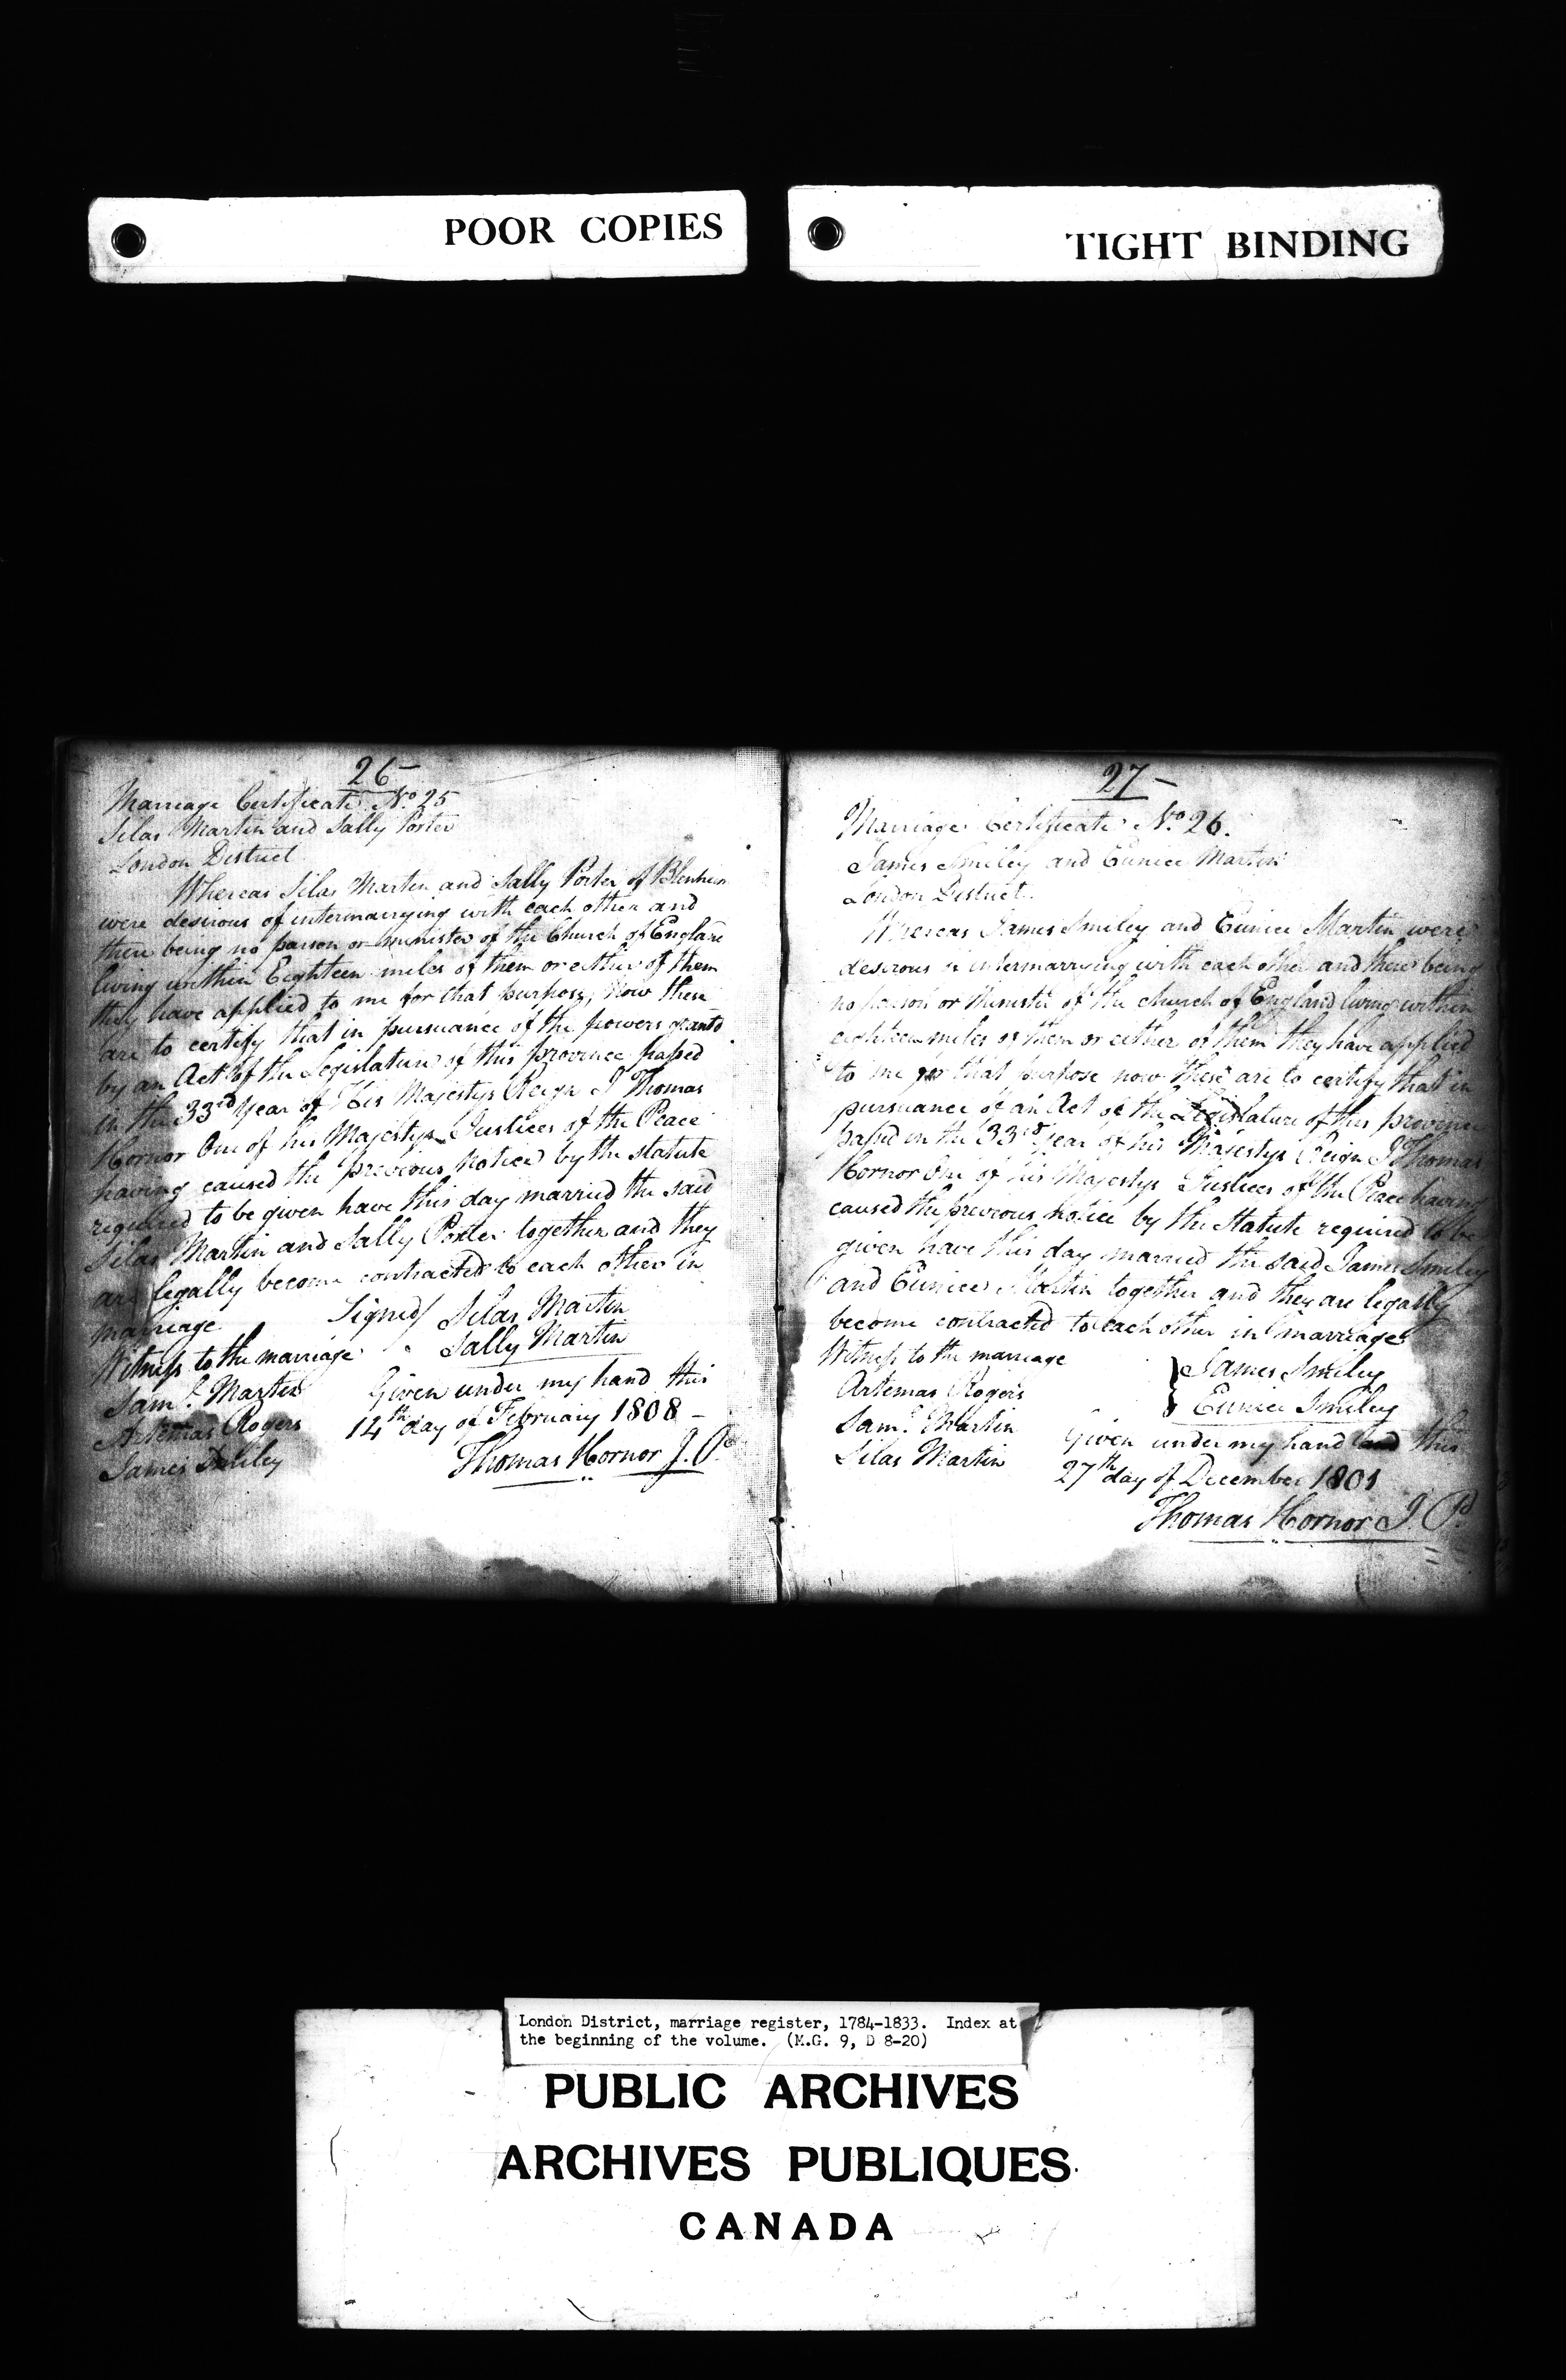 POOR COPIES
TIGHT BINDING
26
Marriage Certificate No. 25
Silas Martin and Sally Porter
London District
Whereas Silas Martin and Sally Porter of Blenheim
were desirous of intermarrying with each other and
there being no parson or minister of the Church of England
living within Eighteen miles of them or either of them
they have applied to me for that purpose, Now these
are to certify that in pursuance of the powers granted
by an Act of the Legislature of this province passed
in the 33rd Year of His Majestys Reign I Thomas
Hornor One of his Majestys Justices of the Peace
having caused the previous Notice by the statute
required to be given have this day married the said
Silas Martin and Sally Porter together and they
are legally become contracted to each other in
marriage
Signed/ Silas Martin
Sally Martin
Witness to the marriage
Saml. Martin
Artemas Rogers
James
Given under my hand this
14th day of February 1808
Thomas Hornor J. P.
27
Marriage Certificate No. 26.
James Smiley and Eunice Martin
London District.
Whereas James Smiley and Eunice Martin were
desirous of intermarrying with each other and there being
no parson or Minister of the church of England living within
eighteen miles of them or either of them they have applied
to me for that purpose now these are to certify that in
pursuance of an Act of the Legislature of this province
passed in the 33rd year of his Majestys Reign I Thomas
Hornor One of his Majestys Justices of the Peace having
caused the previous notice by the Statute required to be
given have this day married the said James Smiley
and Eunice Martin together and they are legally
become contracted to each other in marriage
Witness to the marriage
Artemas Rogers
Saml. Martin
Silas Martin
James Smiley
Eunice Smiley
Given under my hand and this
27th day of December 1801
Thomas Hornor J. P.
London District, marriage register, 1784-1833. Index at
the beginning of the volume. (M.G. 9, D 8-20)
PUBLIC ARCHIVES
ARCHIVES PUBLIQUES
CANADA